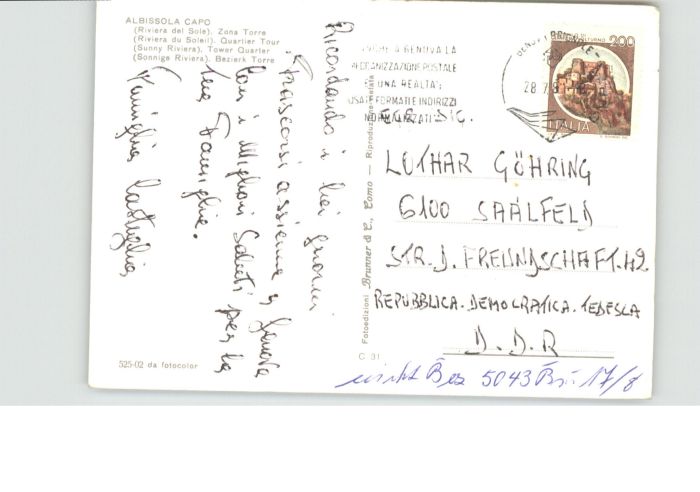 ALBISSOLA CAPO
(Riviera del Sole). Zona Torre
(Riviera du Soleil). Quartier Tour
(Sunny Riviera). Tower Quarter
(Sonnige Riviera). Bezierk Torre
Ricordando i bei giorni
trascorsi assieme a Genova
con i Migliori Saluti per la
tua Famiglia.
Famiglia
525-02 da fotocolor
Fotoedizioni Brunner & C., Como — Riproduzione vietata
C. 31
A GENOVA LA
MECCANIZZAZIONE POSTALE
UNA REALTA';
USATE FORMATI E INDIRIZZI
NORMALIZZATI
28 7 8
200
ITALIA
EGR. SIG.
LOTHAR GÖHRING
6100 SAALFELD
STR. D. FREUNDSCHAFT. 42
REPUBBLICA. DEMOCRATICA. TEDESCA
D. D. R
5043 17/8